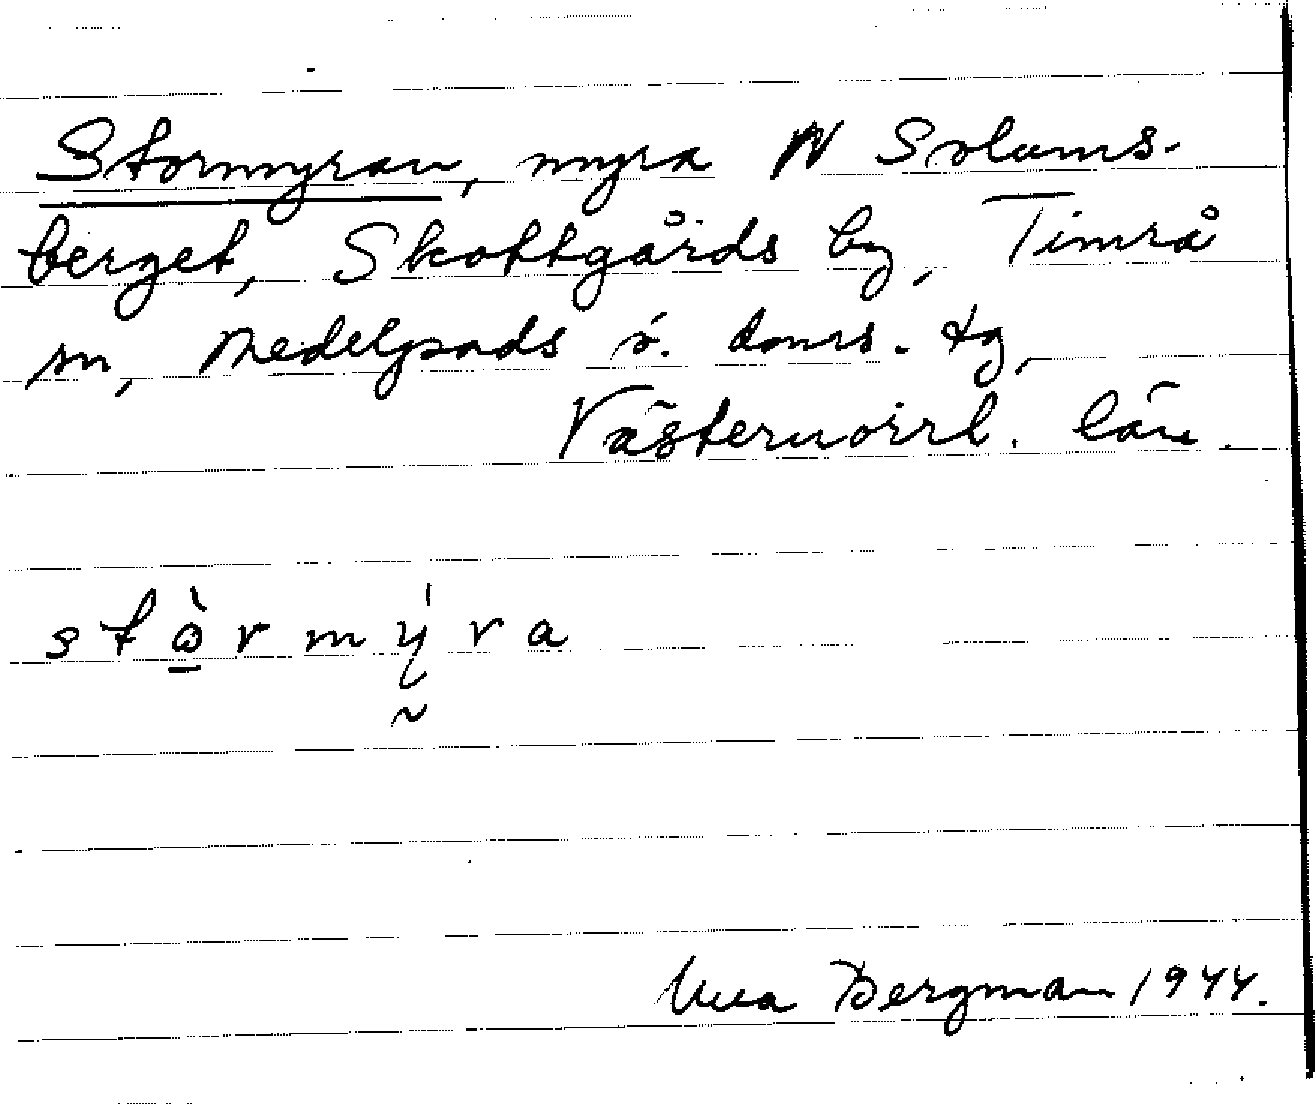 Stormyran, myra N Solums-
berget, Skottgårds by, Timrå
sn, Medelpads ö. doms. tg,
Västernorrl. län.
stòrmýra
Bergman 1944.